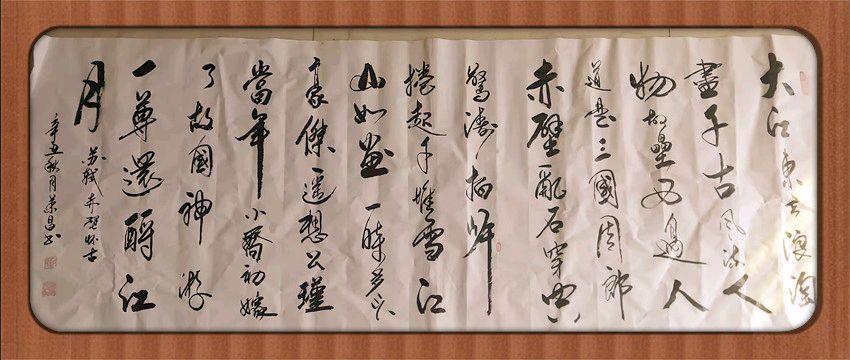 大江東去浪淘
盡千古風流人
物故壘西邊人
道是三國周郎
赤壁亂石穿空
驚濤拍岸
捲起千堆雪江
山如畫一時多少
豪傑遙想公瑾
當年小喬初嫁
了故國神游
一尊還酹江
月
苏軾赤壁怀古
辛丑秋月荣昌书